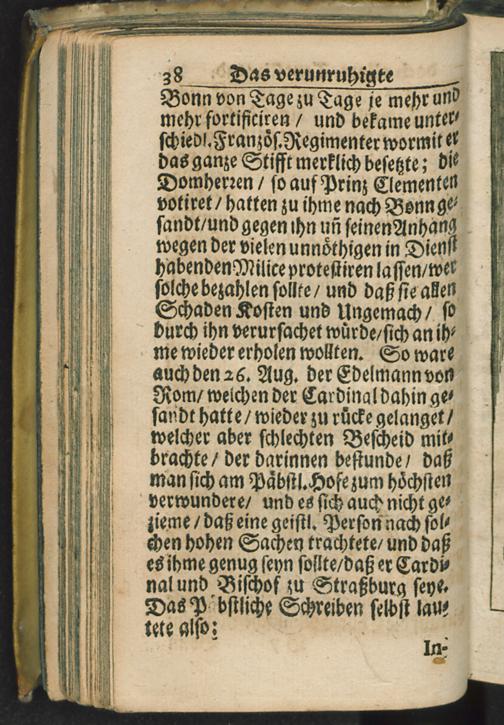 38 Das verunruhigte
Bonn von Tage zu Tage je mehr und
mehr fortificiren / und bekame unter-
schiedl. Französ. Regimenter wormit er
das ganze Stifft merklich besetzte; die
Domherren / so auf Prinz Clementen
votiret / hatten zu ihme nach Bonn ge-
sandt / und gegen ihn uñ seinen Anhang
wegen der vielen unnöthigen in Dienst
habenden Milice protestiren lassen / wer
solche bezahlen sollte / und daß sie allen
Schaden Kosten und Ungemach / so
durch ihn verursachet würde / sich an ih-
me wieder erholen wollten. So ware
auch den 26. Aug. der Edelmann von
Rom / welchen der Cardinal dahin ge-
sandt hatte / wieder zu rücke gelanget /
welcher aber schlechten Bescheid mit-
brachte / der darinnen bestunde / daß
man sich am Päbstl. Hofe zum höchsten
verwundere / und es sich auch nicht ge-
zieme / daß eine geistl. Person nach sol-
chen hohen Sachen trachtete / und daß
es ihme genug seyn sollte / daß er Cardi-
nal und Bischof zu Straßburg seye.
Das P bstliche Schreiben selbst lau-
tete also:
In-